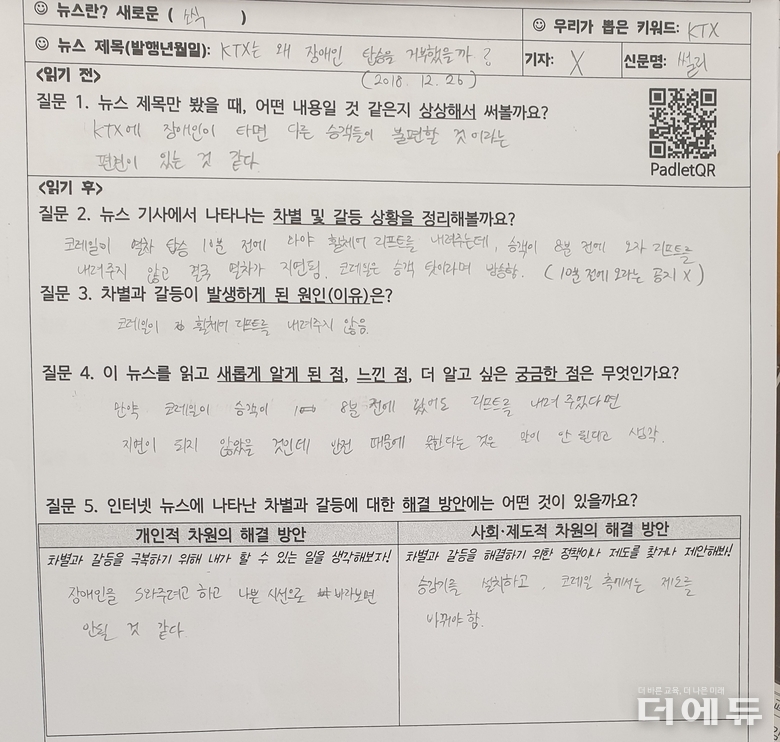 ☺ 뉴스란? 새로운 ( 소식 )
☺ 우리가 뽑은 키워드: KTX
☺ 뉴스 제목(발행년월일): KTX는 왜 장애인 탑승을 거부했을까?
(2018. 12. 26)
기자: X
신문명: 썰리
<읽기 전>
질문 1. 뉴스 제목만 봤을 때, 어떤 내용일 것 같은지 상상해서 써볼까요?
KTX에 장애인이 타면 다른 승객들이 불편할 것이라는
편견이 있는 것 같다.
PadletQR
<읽기 후>
질문 2. 뉴스 기사에서 나타나는 차별 및 갈등 상황을 정리해볼까요?
코레일이 열차 탑승 10분 전에 와야 휠체어 리프트를 내려주는데, 승객이 8분 전에 오자 리프트를
내려주지 않고 결국 열차가 지연됨. 코레일은 승객 탓이라며 방송함. (10분 전에 오라는 공지 X)
질문 3. 차별과 갈등이 발생하게 된 원인(이유)은?
코레일이 휠체어 리프트를 내려주지 않음.
질문 4. 이 뉴스를 읽고 새롭게 알게 된 점, 느낀 점, 더 알고 싶은 궁금한 점은 무엇인가요?
만약 코레일이 승객이 8분 전에 왔어도 리프트를 내려 주었다면
지연이 되지 않았을 것인데 안전 때문에 못한다는 것은 말이 안 된다고 생각.
질문 5. 인터넷 뉴스에 나타난 차별과 갈등에 대한 해결 방안에는 어떤 것이 있을까요?
개인적 차원의 해결 방안
사회·제도적 차원의 해결 방안
차별과 갈등을 극복하기 위해 내가 할 수 있는 일을 생각해보자!
차별과 갈등을 해결하기 위한 정책이나 제도를 찾거나 제안해봐!
장애인을 도와주려고 하고 나쁜 시선으로 바라보면
안될 것 같다.
승강기를 설치하고, 코레일 측에서는 제도를
바꿔야 함.
더 바른 교육, 더 나은 미래
더에듀